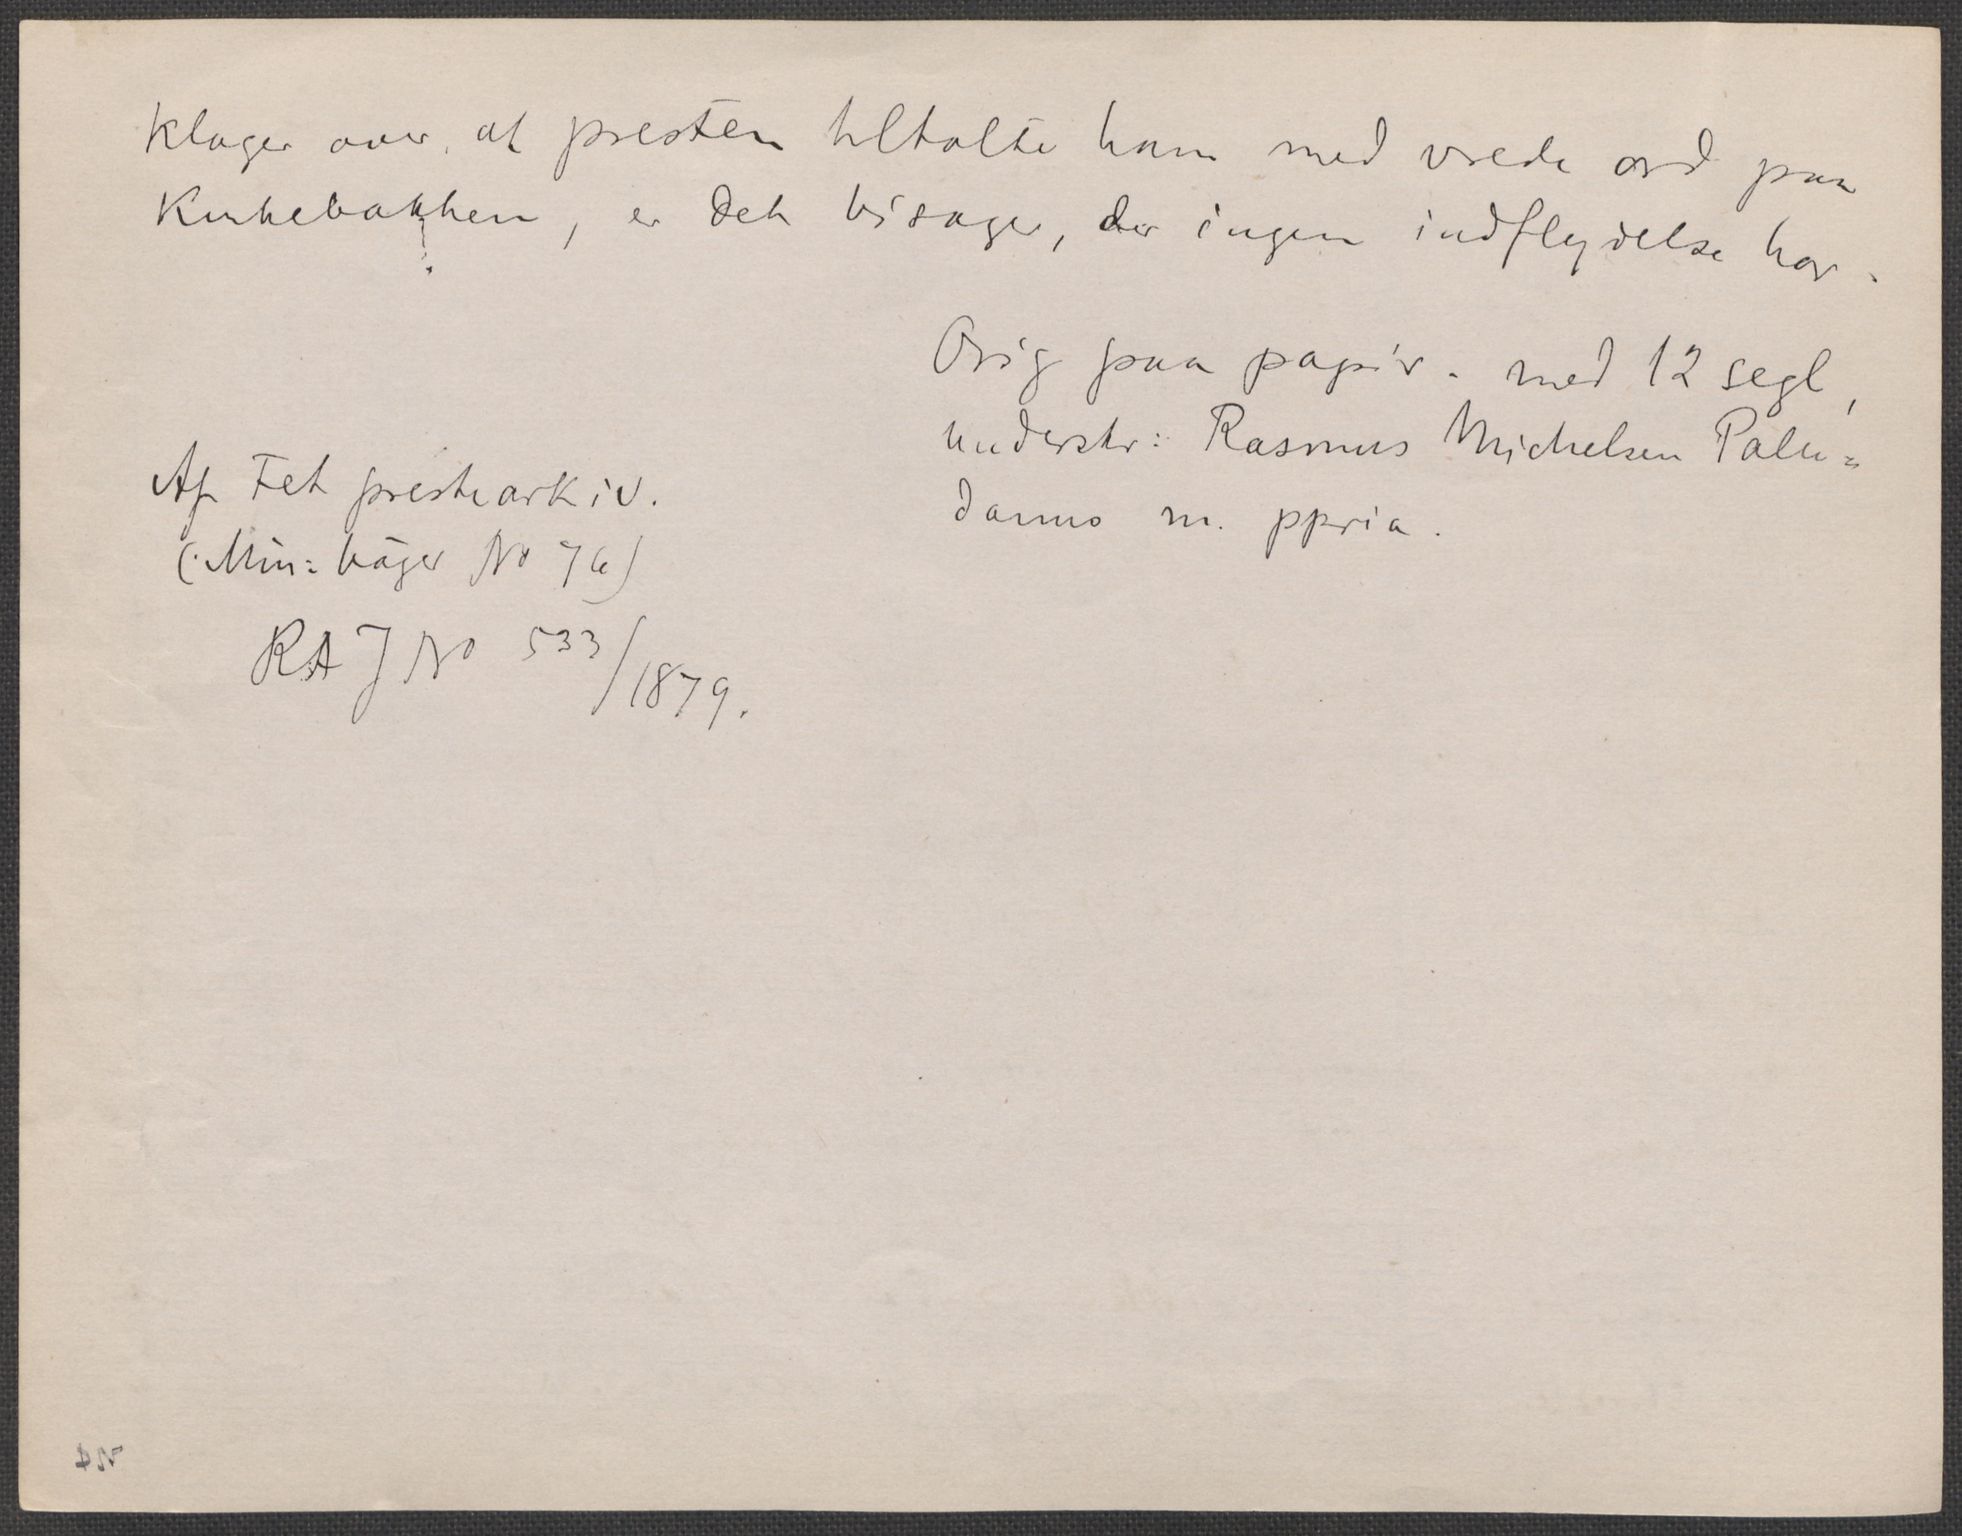 klager over at presten tiltalte ham med vrede ord paa
Kirkebakken, er det bisager, der ingen indflydelse har.
Orig paa papir. med 12 segl,
underskr: Rasmus Michelsen Palu=
danus m. ppria.
Af Fet prestearkiv.
(Min: bøger No 7a)
RA J No 533/1879.